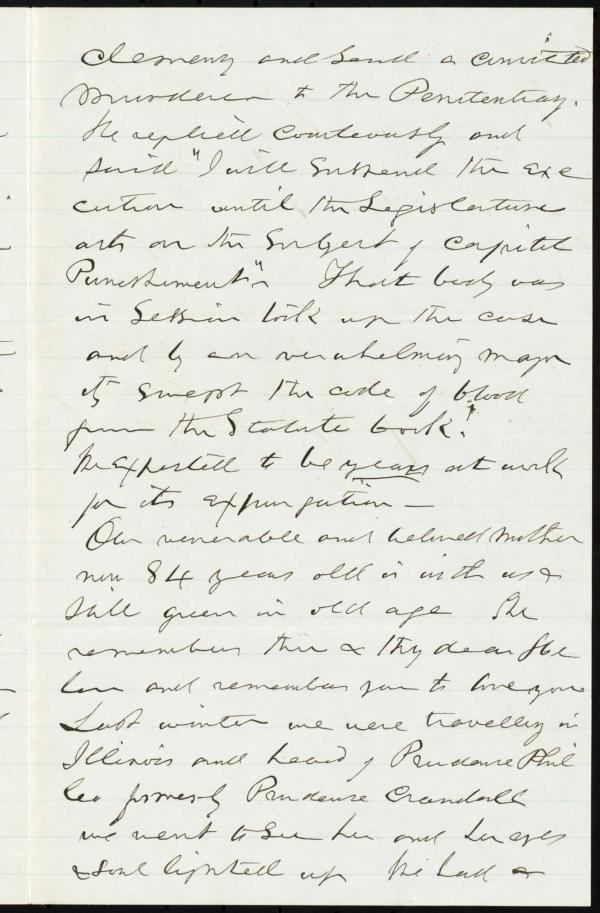 Clemency and send a convicted
Murderer to the Penitentiary.
He replied Courteously and
said "I will Suspend the exe
cution until the Legislature
acts on the Subject of Capital
Punishment". That body was
in Session took up the case
and by an overwhelming major
ity swept the code of blood
from the Statute book!
We expected to be years at work
for its expurgation —
Our venerable and beloved Mother
now 84 years old is with us &
still green in old age She
remembers thee & thy dear
and remembers you to love you
Last winter we were travelling in
Illinois and heard of Prudence Phil
leo formerly Prudence Crandall
we went to See her and her eyes
& soul lighted up We had a